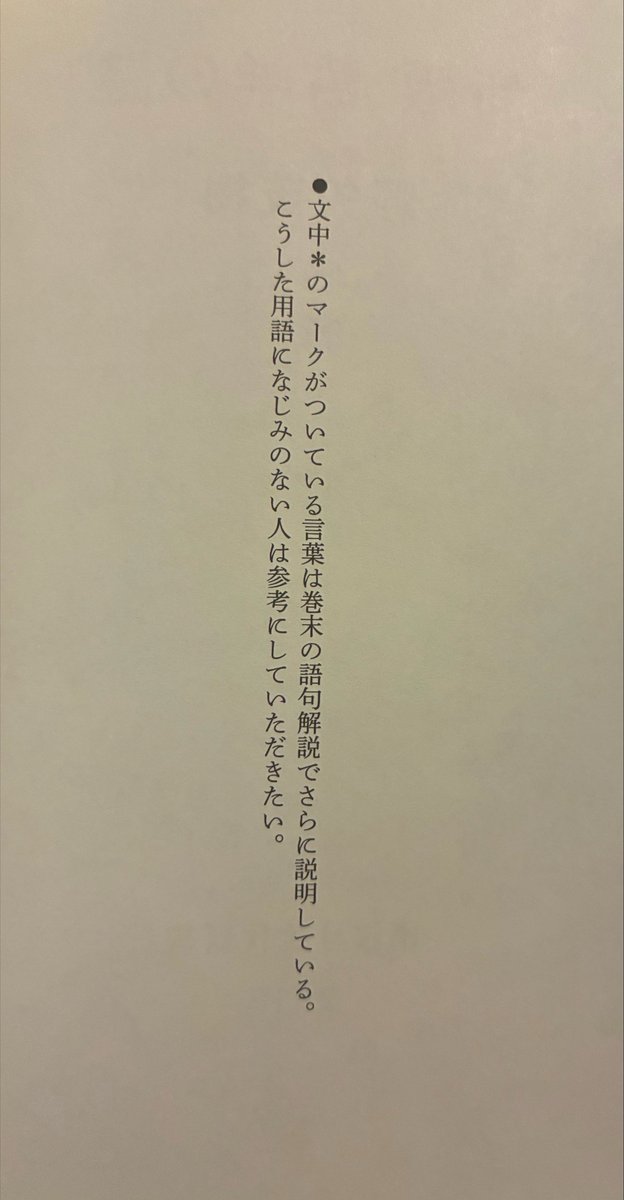 ●文中＊のマークがついている言葉は巻末の語句解説でさらに説明している。
こうした用語になじみのない人は参考にしていただきたい。